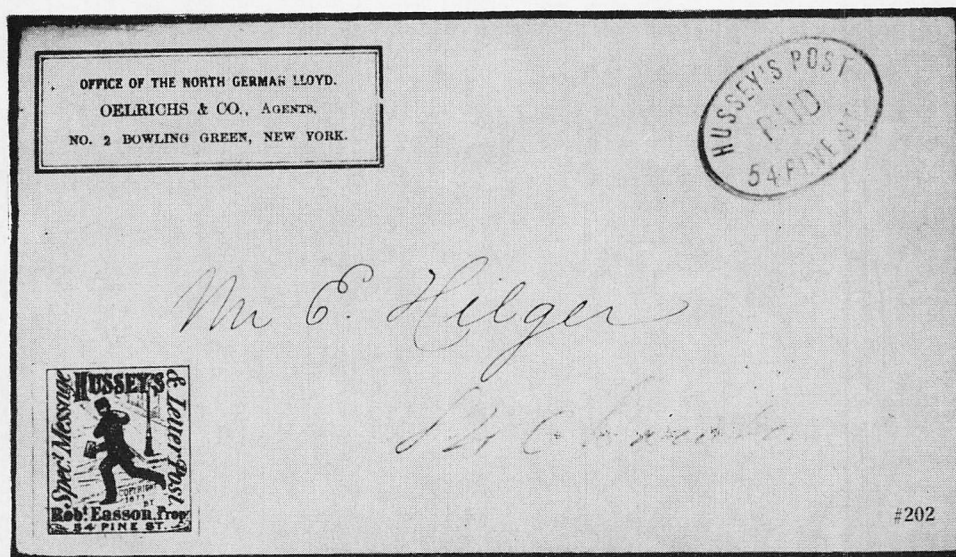 OFFICE OF THE NORTH GERMAN LLOYD.
OELRICHS & CO., AGENTS,
NO. 2 BOWLING GREEN, NEW YORK.
HUSSEY'S POST
PAID
54 PINE ST.
Mr E. Hilger
HUSSEY'S
Spec! Message
& Letter Post
Robt. Easson, Prop
54 PINE ST.
#202